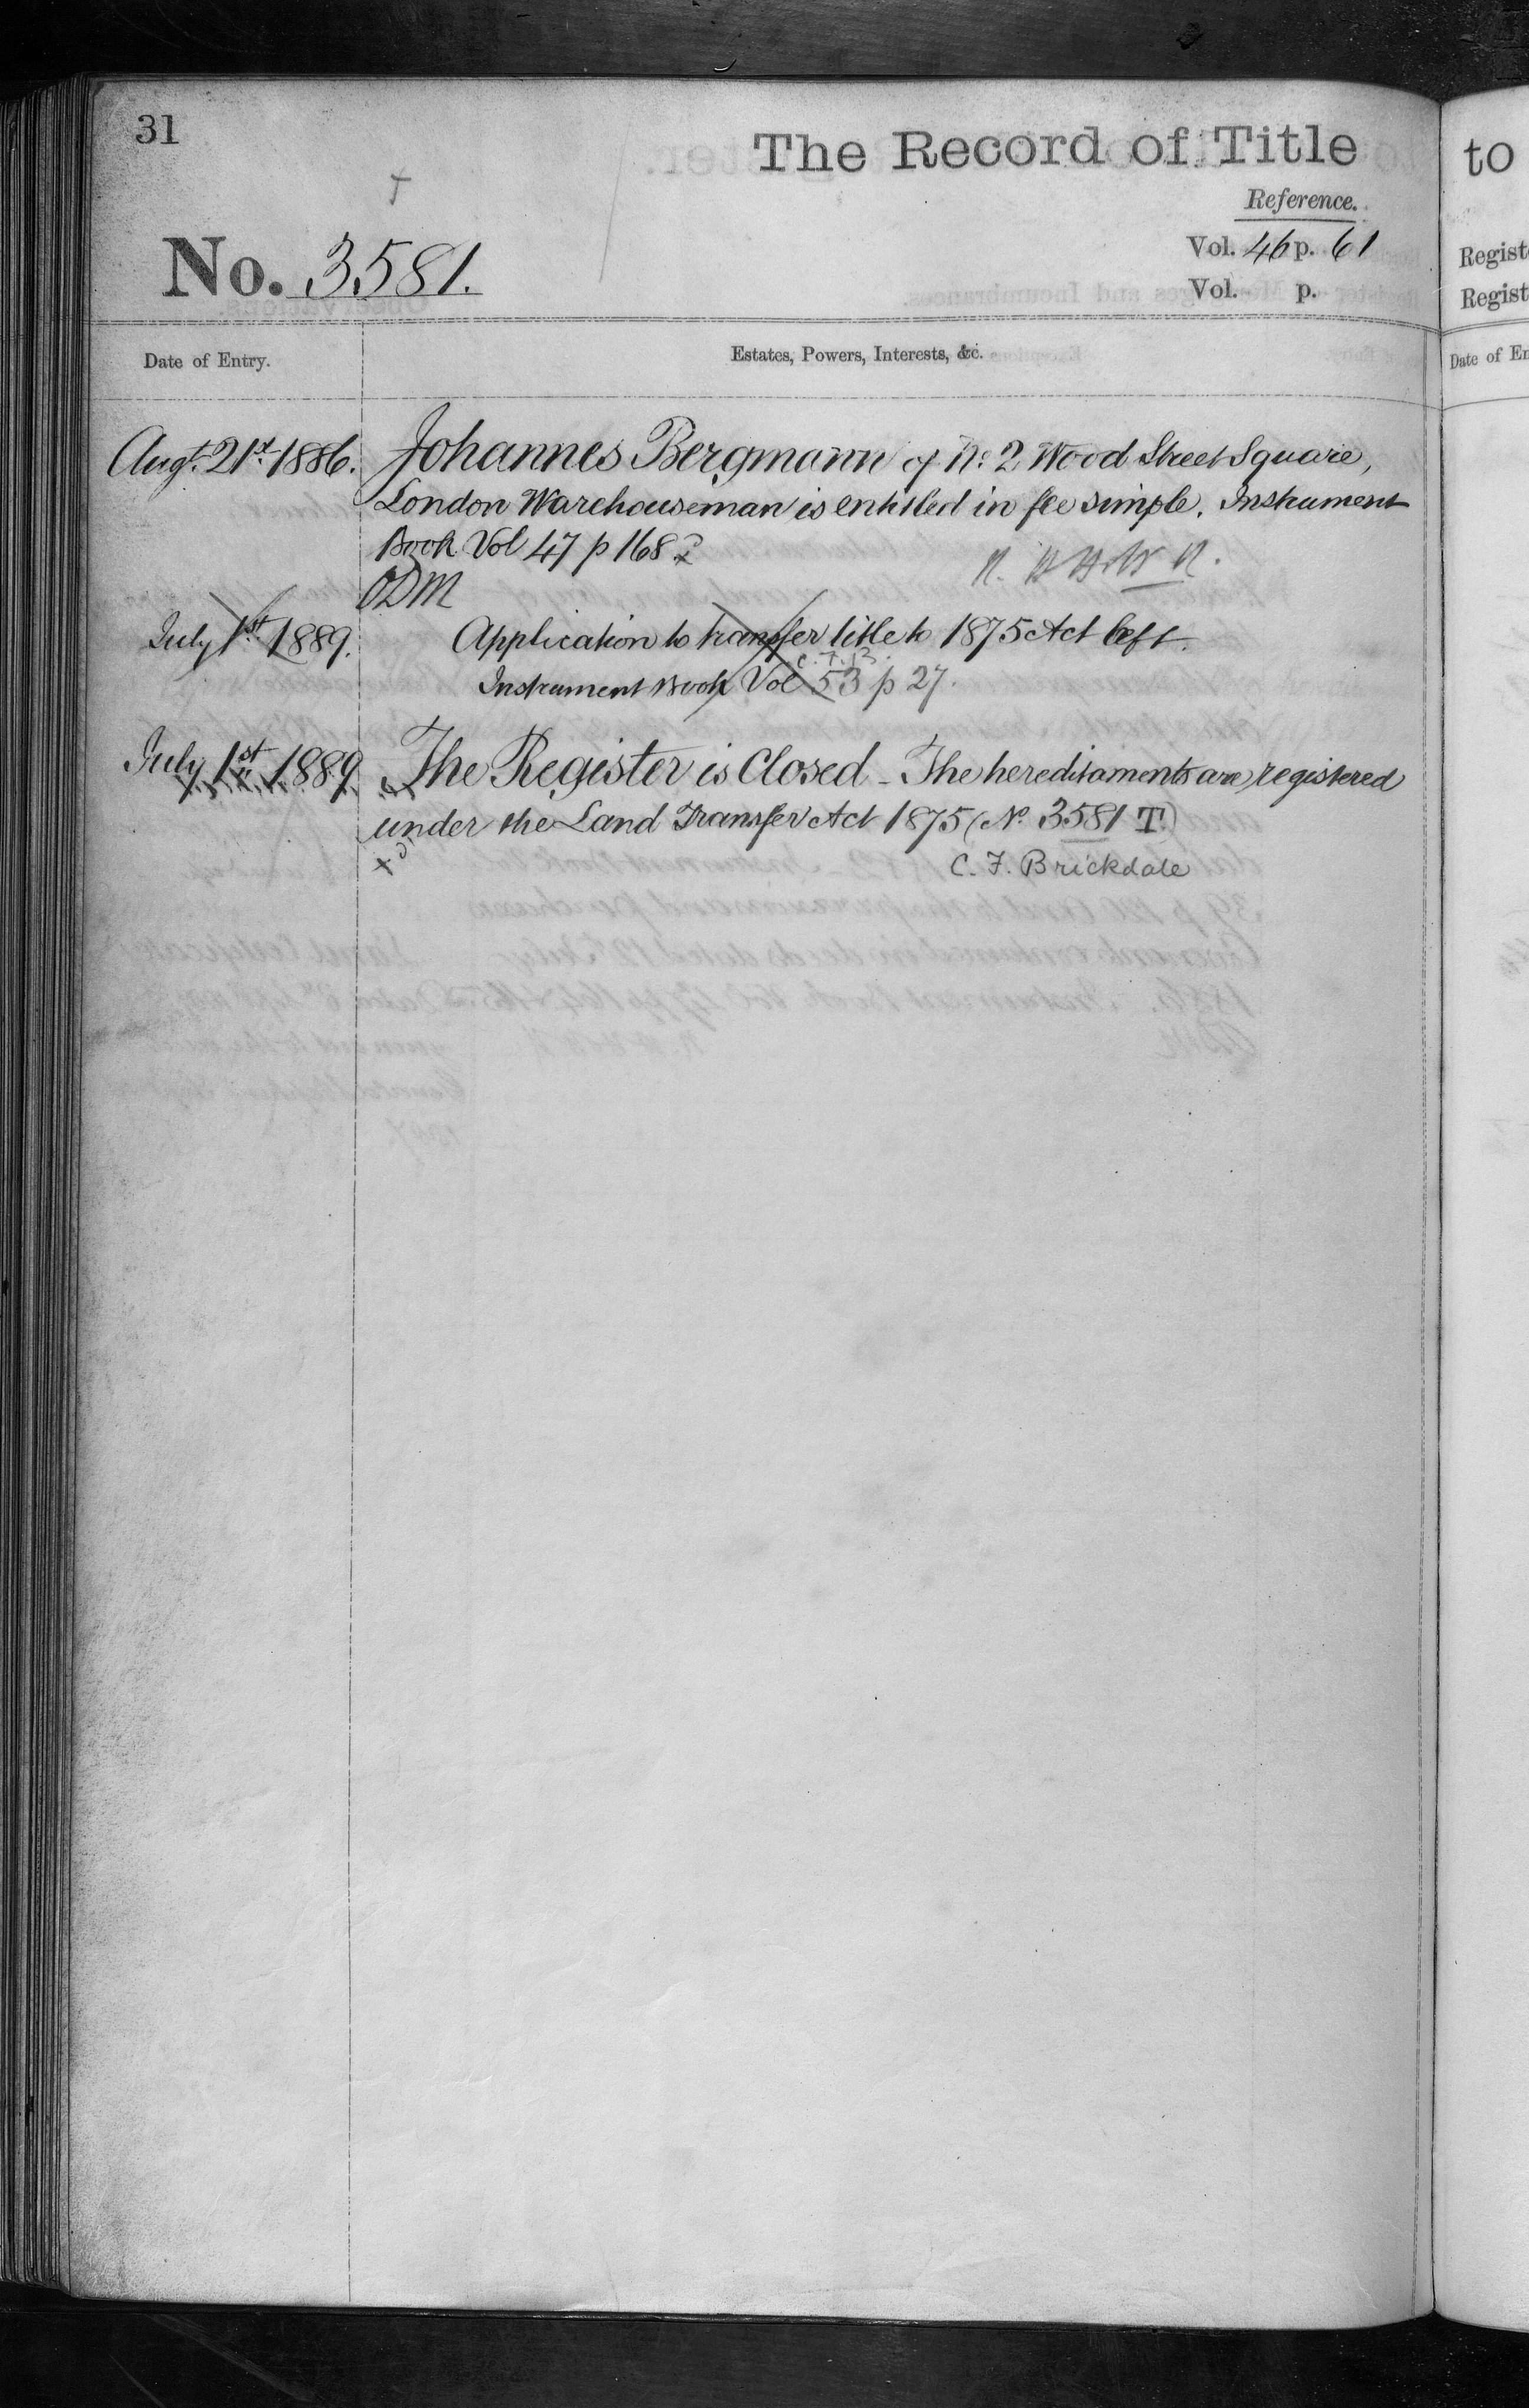 31
The Record of Title
T
Reference.
No. 3581.
Vol. 46 p. 61
Vol. p.
Date of Entry.
Estates, Powers, Interests, &c.
Augt. 21st 1886.
Johannes Bergmann of No. 2 Wood Street Square,
London Warehouseman is entitled in fee simple. Instrument
Book Vol 47 p 168
ODM
July 1st 1889.
Application to transfer title to 1875 Act left.
Instrument Book Vol 53 p 27.
July 1st 1889
The Register is Closed - The hereditaments are registered
under the Land Transfer Act 1875 (No. 3581 T)
C. F. Brickdale
to
Regist
Regist
Date of En